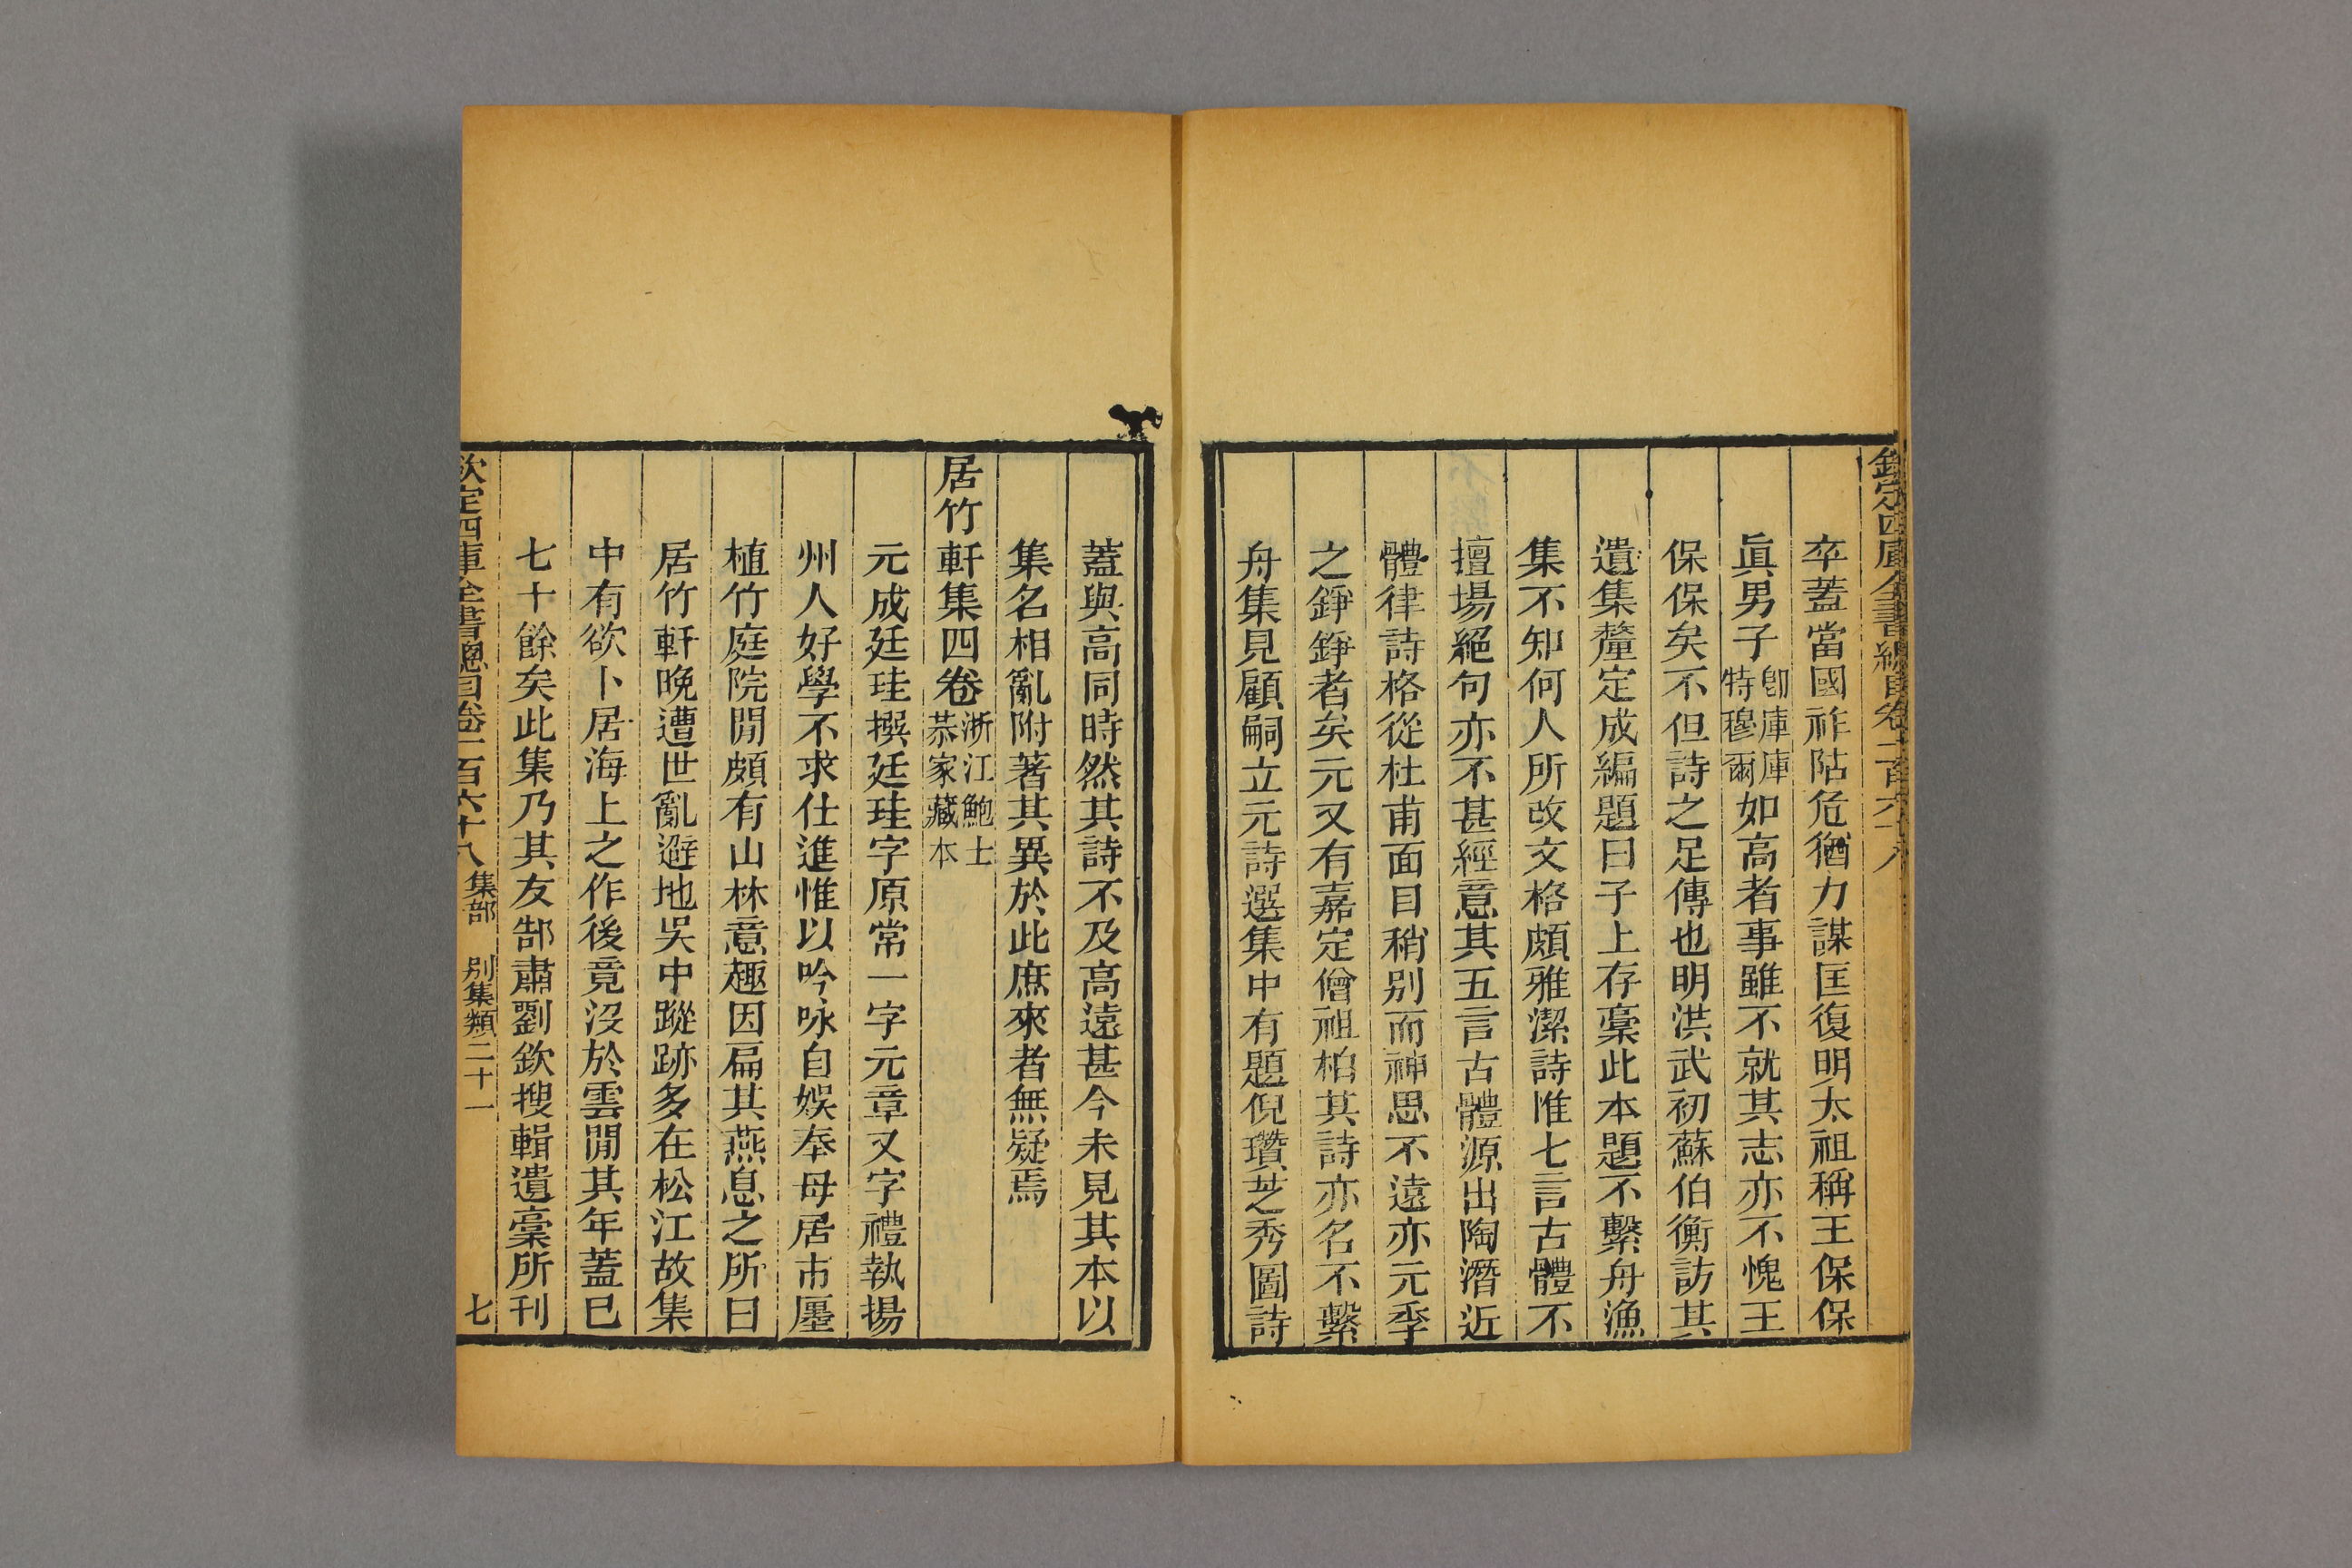 欽定四庫全書總目卷一百六十八
卒蓋當國祚阽危猶力謀匡復明太祖稱王保保
眞男子卽庫庫特穆爾如高者事雖不就其志亦不愧王
保保矣不但詩之足傳也明洪武初蘇伯衡訪其
遺集釐定成編題曰子上存稾此本題不繫舟漁
集不知何人所改文格頗雅潔詩惟七言古體不
擅場絕句亦不甚經意其五言古體源出陶潛近
體律詩格從杜甫面目稍别而神思不遠亦元季
之錚錚者矣元又有嘉定僧祖柏其詩亦名不繫
舟集見顧嗣立元詩選集中有題倪瓚芝秀圖詩
蓋與高同時然其詩不及高遠甚今未見其本以
集名相亂附著其異於此庶來者無疑焉
居竹軒集四卷浙江鮑士恭家藏本
元成廷珪撰廷珪字原常一字元章又字禮執揚
州人好學不求仕進惟以吟咏自娛奉母居市廛
植竹庭院閒頗有山林意趣因扁其燕息之所曰
居竹軒晚遭世亂避地吳中蹤跡多在松江故集
中有欲卜居海上之作後竟沒於雲閒其年蓋已
七十餘矣此集乃其友郜肅劉欽搜輯遺稾所刊
欽定四庫全書總目卷一百六十八 集部 別集類二十一 七